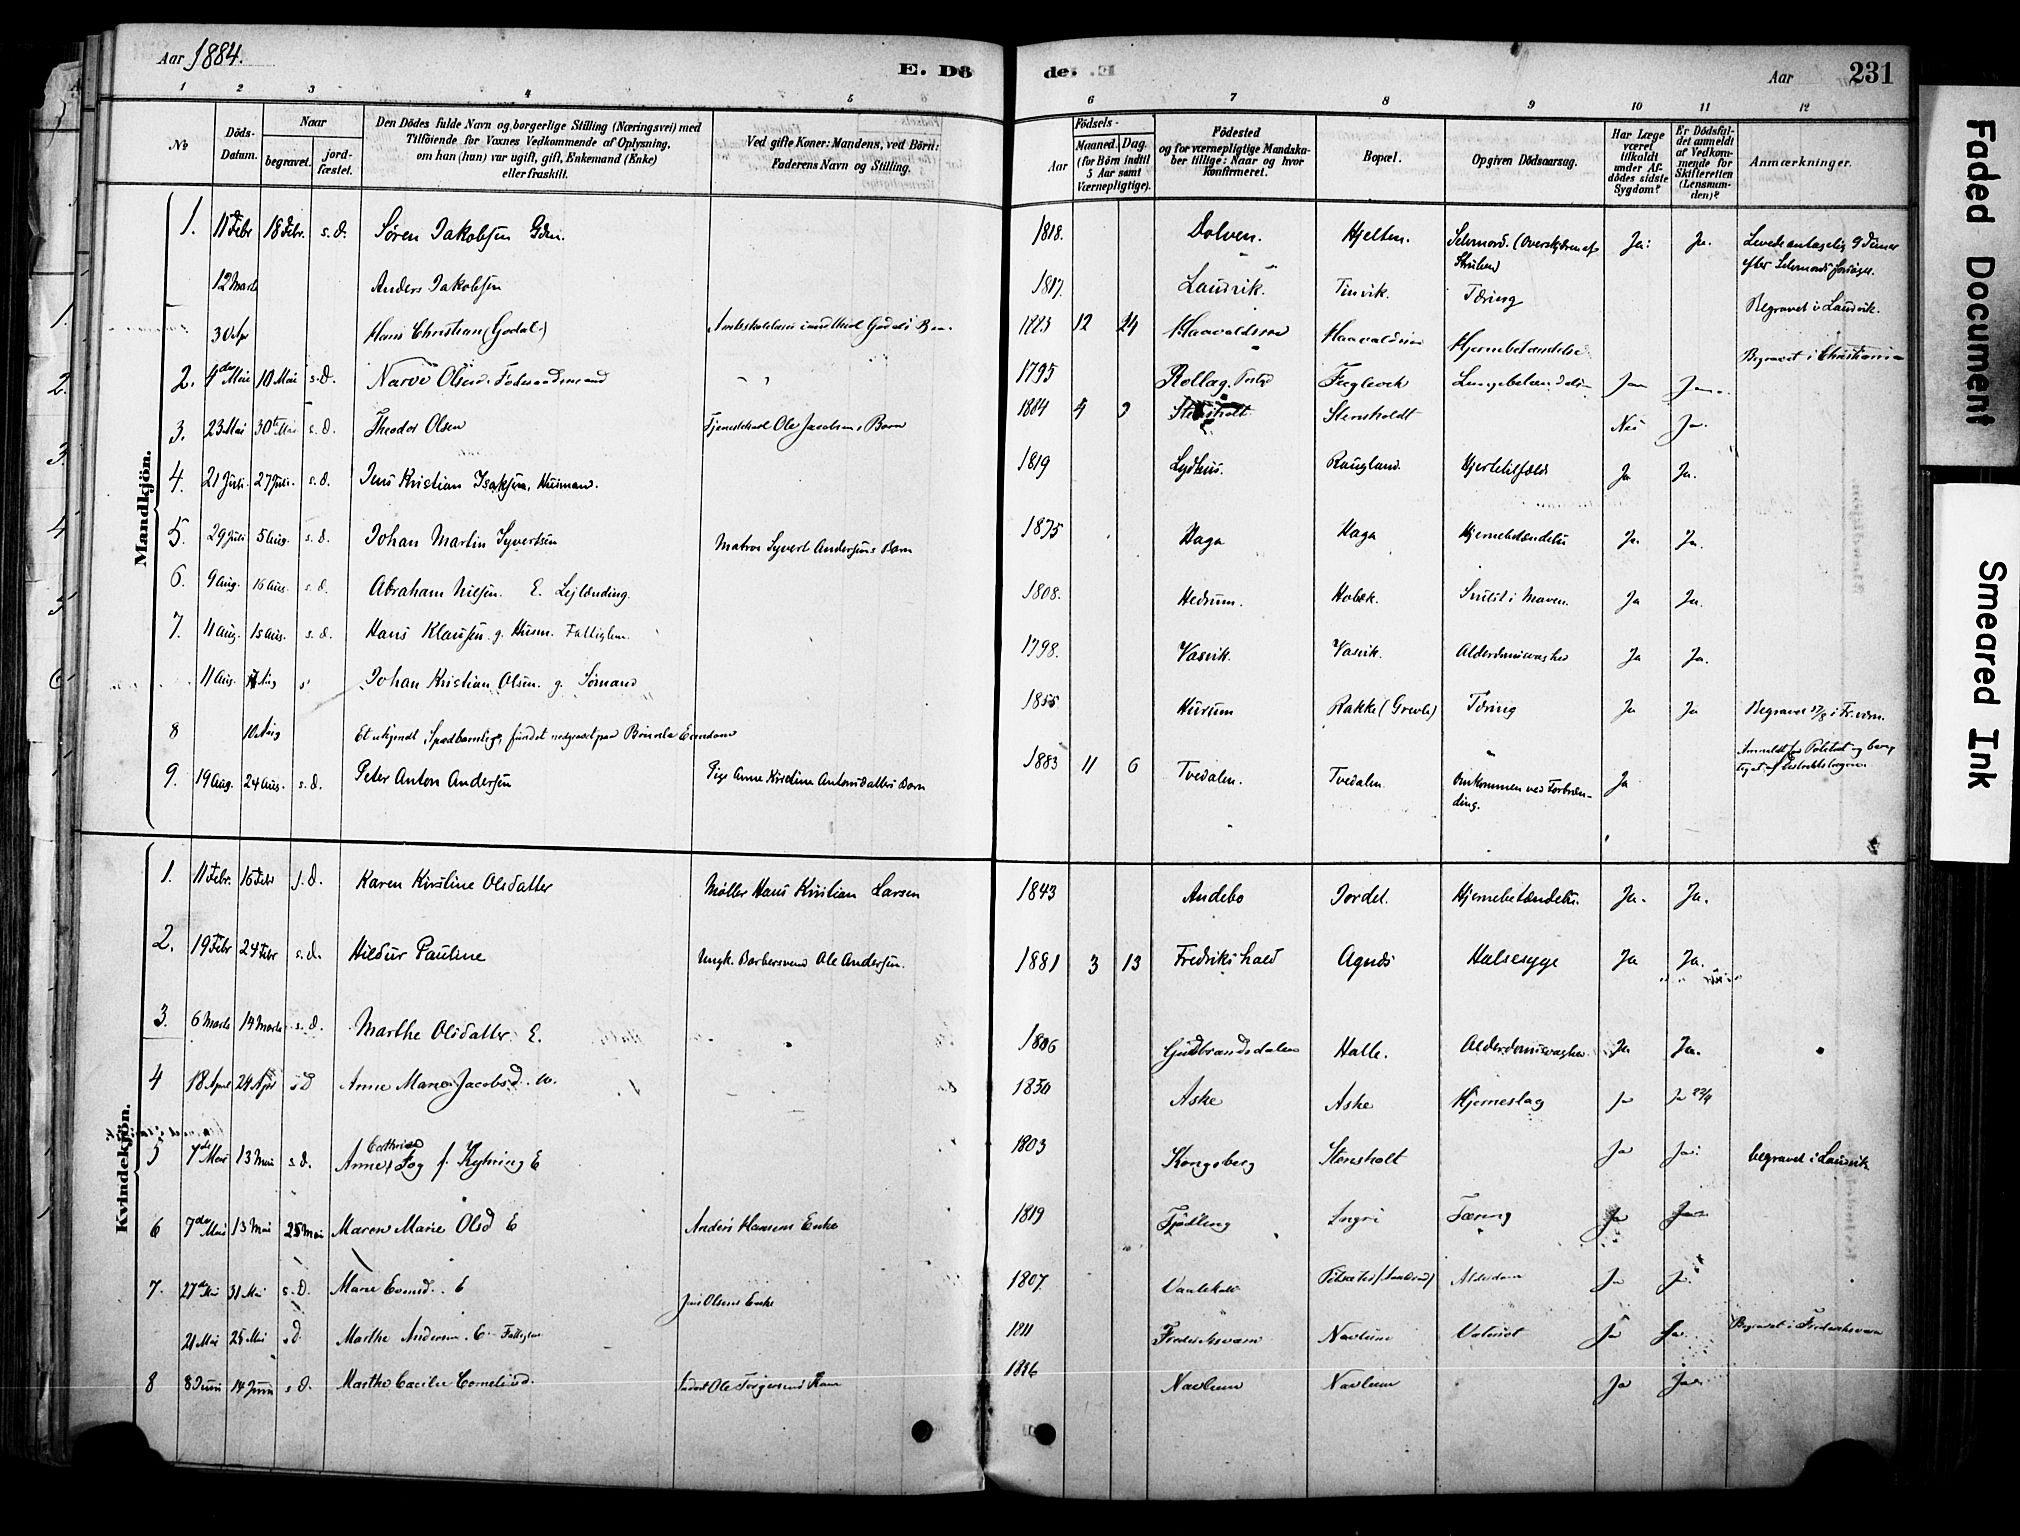 Aar 1884.
E. Dö
de.
Aar
231
1 2 3 4 5 6 7 8 9 10 11 12
No
Döds-Datum.
Naar
begravet.
jord-fæstet.
Den Dödes fulde Navn og borgerlige Stilling (Næringsvei) med
Tilföiende for Voxnes Vedkommende af Oplysning,
om han (hun) var ugift, gift, Enkemand (Enke)
eller fraskilt.
Ved gifte Koner: Mandens, ved Börn:
Faderens Navn og Stilling.
Födsels-
Aar
Maaned. Dag.
(for Börn indtil
5 Aar samt
Værnepligtige).
Födested
og for værnepligtige Mandska-
ber tillige: Naar og hvor
Konfirmeret.
Bopæl.
Opgiven Dödsaarsag.
Har Læge
været
tilkaldt
under Af-
dödes sidste
Sygdom?
Er Dödsfal-
det anmeldt
af Vedkom-
mende for
Skifteretten
(Lensman-
den)?
Anmærkninger.
Mandkjön.
1. 11 Febr 18 Febr. s.d. Søren Jakobsen Gdm. 1818. Dolven. Hjelten. Selvmord. (Overskjæren af Struben) Ja: Ja. Levede antagelig 9 Timer efter Selvmordsforsøget.
12 Marts Anders Jakobsen 1817. Laurvik. Tinvik. Tæring Begravet i Laurvik.
30 Apr Hans Christian (Godal) 12 24 Haavaldsrød Haavaldsrød Hjernebetændelse Begravet i Christiania
2. 4de Mai 10 Mai s.d. Narve Olsen. Føderaadsmand 1795 Rollag. Fuglevik Lungebetændelse Ja Ja
3. 23 Mai 30te Mai s.d. Theodor Olsen Tjenestekarl Ole Jacobsens Barn 1884 4 9 Stensholt Stensholdt Nei Ja.
4. 21 Juli. 27 Juli. s.d. Jens Kristian Isaksen, Husmand. 1819 Lydhus. Raugland. Hjertetilfælde Ja Ja.
5. 29 Juli 5 Aug. s.d. Johan Martin Syvertsen Matros Syvert Andersens Barn 1875 Haga Haga Hjernebetændelse Ja. Ja.
6. 9 Aug. 16 Aug. s.d. Abraham Nielsen E. Lejlænding. 1808. Hedrum. Hobæk. Svulst i Maven. Ja Ja.
7. 11 Aug. 15 Aug. s.d. Hans Klausen g. Husm. Fattiglem. 1798. Vasvik. Vasvik. Alderdomssvaghed Ja Ja.
11 Aug. 17 Aug Johan Kristian Olsen g. Sømand 1855 Hurum Rakke (Grevle) Tæring Ja Ja Begravet 17/8 i Fr.værn.
8 10 Aug Et ukjendt Spædbarnlig, fundet nedgravet paa Brunla Eiendom
9. 19 Aug. 24 Aug. s.d. Peter Anton Andersen Pige Anne Kirstine Antonsdatters Barn 1883 11 6 Tvedalen. Tvedalen Omkommen ved Forbrænding. Ja
Kvindekjön.
1. 11 Febr. 16 Febr s.d. Karen Kirstine Olsdatter Møller Hans Kristian Larsen 1843 Andebo Jordet. Hjernebetændelse. Ja. Ja.
2. 19 Febr 24 Febr s.d. Hildur Pauline Ungk. Barbersvend Ole Andersen. 1881 3 13 Fredrikshald Agnes Halsesyge Ja Ja.
3. 6 Marts 14 Marts s.d. Marthe Olsdatter E. 1806 Gudbrandsdalen Halle. Alderdomssvaghed Ja Ja.
4 18 April 24 Apr s.D Anne Marie Jacobsd. Aske Aske Hjerneslag Ja Ja 22/4
5 7de Mai 13 Mai s.d. Anne Cathrine Fog f. Kyhring E 1803 Kongsberg Stensholt Ja Ja: begravet i Laurvik
6 7de Mai 13 Mai 25 Mai Maren Marie Olsd E Anders Hansens Enke 1819 Tjødling Tæring Ja Ja
7. 27de Mai 31 Mai s.D. Marie Evensd. E Jens Olsens Enke 1807. Alderdom Ja Ja.
21 Mai 25 Mai s.d. Marthe Andersen. E. Fattiglem 1811 Frederiksværn Navlum Ja Ja. Begravet i Frederiksværn
8 8 Juni 14 Juni s.d. Marthe Cecilie Corneliusd. Ole Torgersens Kone Navlum Navlum Ja Ja.
Faded Document
Smeared Ink